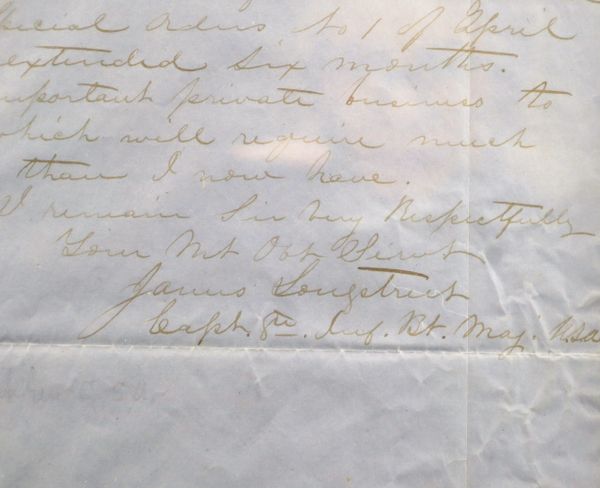 special orders to 1 of April
extended six months.
important private business to
which will require much
than I now have.
I remain Sir very Respectfully
Your Mt Obt Servt
James Longstreet
Capt. 8th. Inf. Bt. Maj. USA